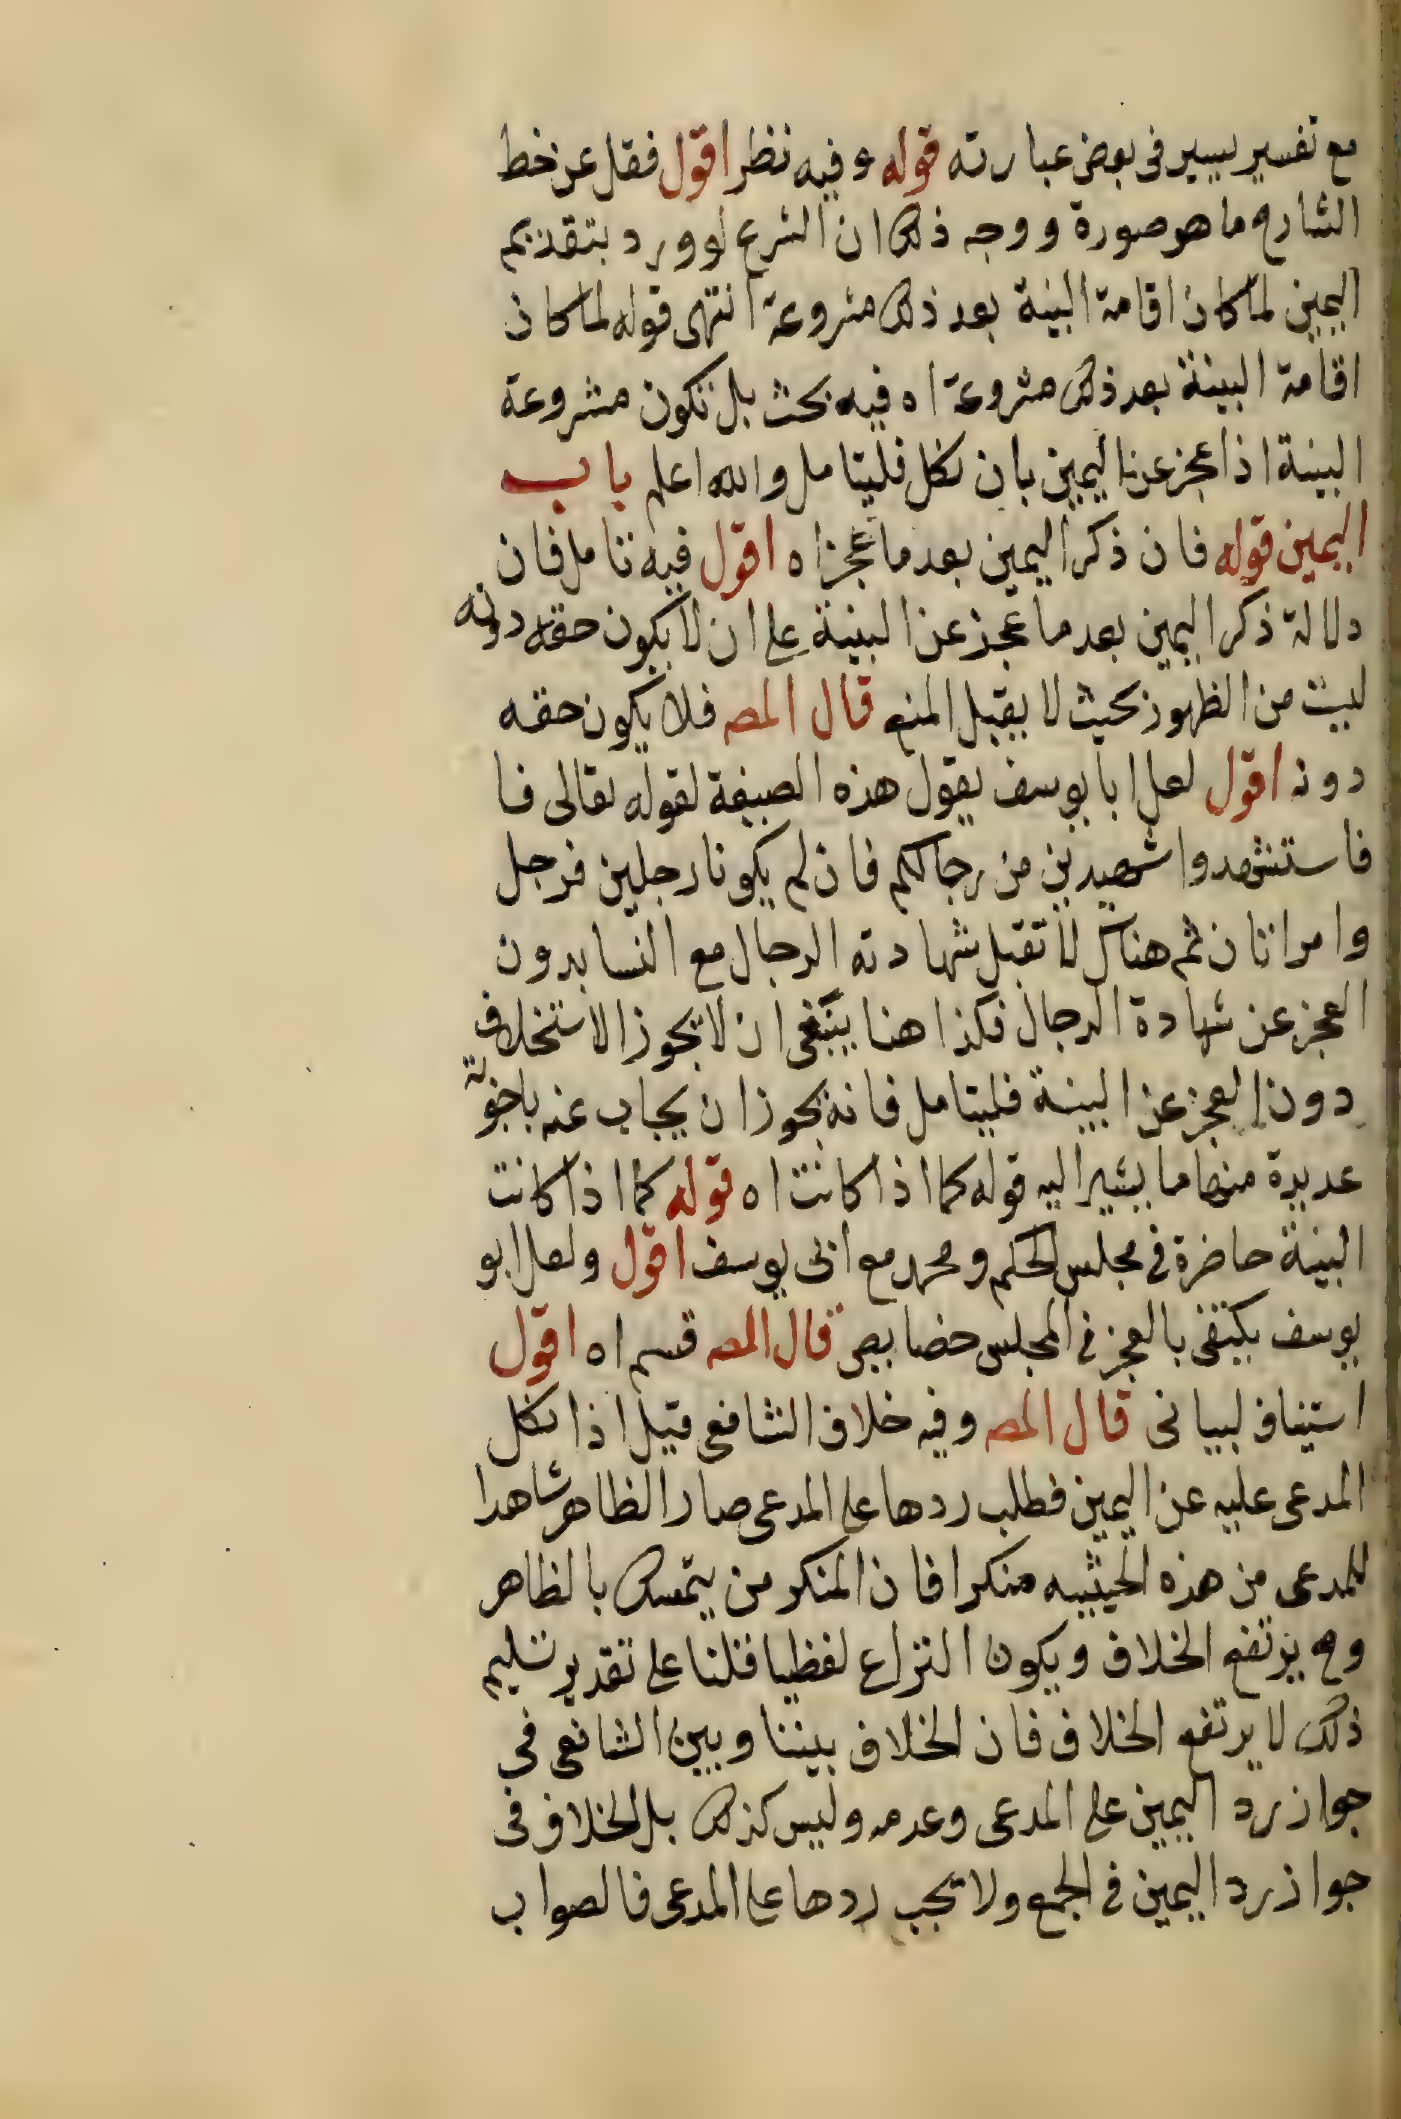 مع تفسير يسير فى بعض عبارته قوله وفيه نظر اقول فقل عن خط
الشارح ما هو صورة ووجه ذلك ان الشرع لو ورد بتقديم
اليمين لما كان اقامة البينة بعد ذلك مشروعة انتهى قوله لما كان
اقامة البينة بعد ذلك مشروعة اه فيه بحث بل تكون مشروعة
البينة اذا عجز عن اليمين بان نكل فليتامل والله اعلم باب
اليمين قوله فان ذكر اليمين بعد ما عجز اه اقول فيه تامل فان
دلالة ذكر اليمين بعد ما عجز عن البينة على ان لا يكون حقه دونه
ليت من الظهور بحيث لا يقبل المنع قال المصـ فلا يكون حقه
دونه اقول لعل ابا يوسف يقول هذه الصيغة لقوله تعالى فا
فاستشهدوا شهيدين من رجالكم فان لم يكونا رجلين فرجل
وامراتان ثم هناك لا تقبل شهادته الرجال مع النسا بدون
العجز عن شهادة الرجال فكذا هنا ينبغى ان لا يجوز الاستخلاف
دون العجز عن البينة فليتامل فانه يجوز ان يجاب عنه باجوبة
عديدة منها ما يشير اليه قوله كما اذا كانت اه قوله كما اذا كانت
البينة حاضرة فى مجلس الحكم ومحمد مع ابى يوسف اقول ولعل ابو
يوسف يكتفى بالعجز فى المجلس قال المصـ قسم اه اقول
استيناف لبيانى قال المصـ وفيه خلاف الشافعى قيل اذا نكل
المدعى عليه عن اليمين فطلب ردها على المدعى صار الظاهر شاهدا
للمدعى من هذه الحيثيه منكرا فان المنكر من يتمسك بالظاهر
وح يرتفع الخلاف ويكون النزاع لفظيا قلنا على تقدير تسليم
ذلك لا يرتفع الخلاف فان الخلاف بيننا وبين الشافعى فى
جواز رد اليمين على المدعى وعدمه وليس كذلك بل الخلاف فى
جواز رد اليمين فى الجمع ولا يجب ردها على المدعى فالصواب